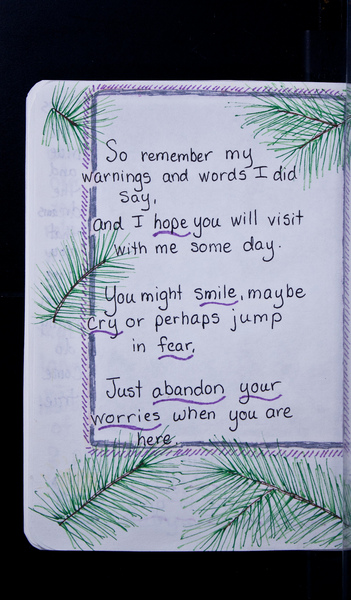 So remember my
warnings and words I did
say,
and I hope you will visit
with me some day.
You might smile, maybe
cry or perhaps jump
in fear,
Just abandon your
worries when you are
here.